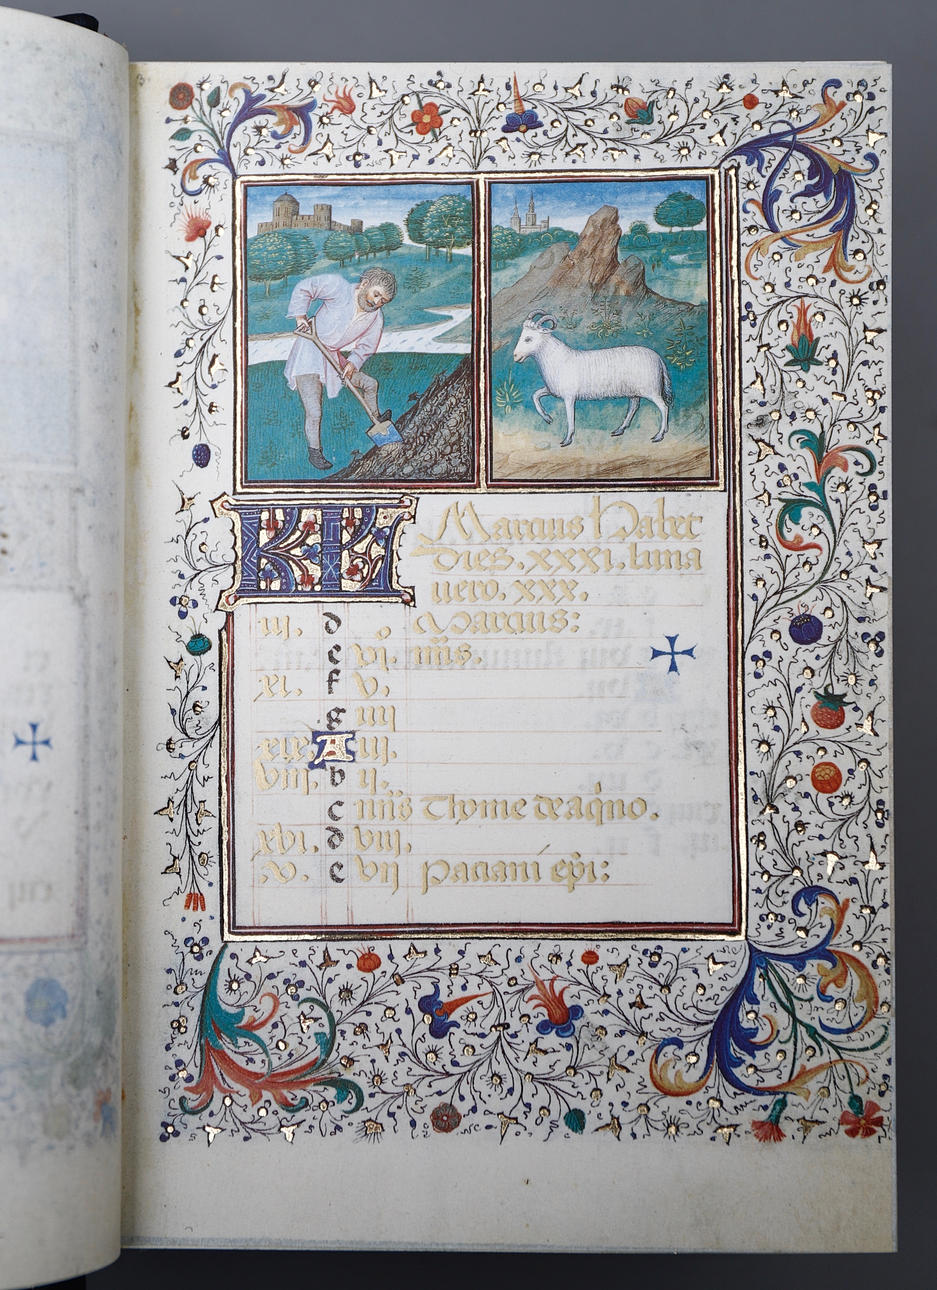 KL Marcius habet
dies. xxxi. luna
uero. xxx.
iii. d Marcius:
e vi. nus.
xi. f v.
g iiii
xix A iii.
viii. b ii.
c nus Thyme de aqno.
xvi. d viii.
v. e vii paciani epi: